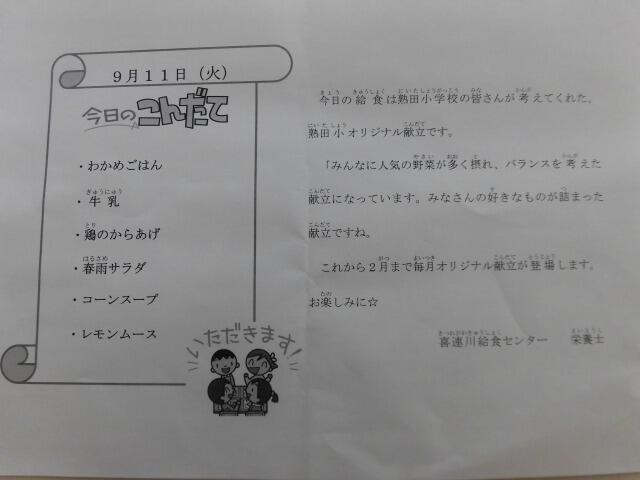 9月11日（火）
今日のこんだて
・わかめごはん
・牛乳
・鶏のからあげ
・春雨サラダ
・コーンスープ
・レモンムース
いただきます!
今日の給食は熟田小学校の皆さんが考えてくれた、
熟田小オリジナル献立です。
「みんなに人気の野菜が多く摂れ、バランスを考えた
献立になっています。みなさんの好きなものが詰まった
献立ですね。
これから2月まで毎月オリジナル献立が登場します。
お楽しみに☆
喜連川給食センター　栄養士